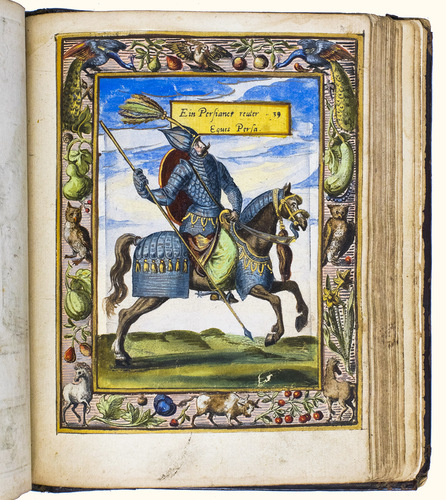 Ein Persianct reuter · 39
Eques Persa.